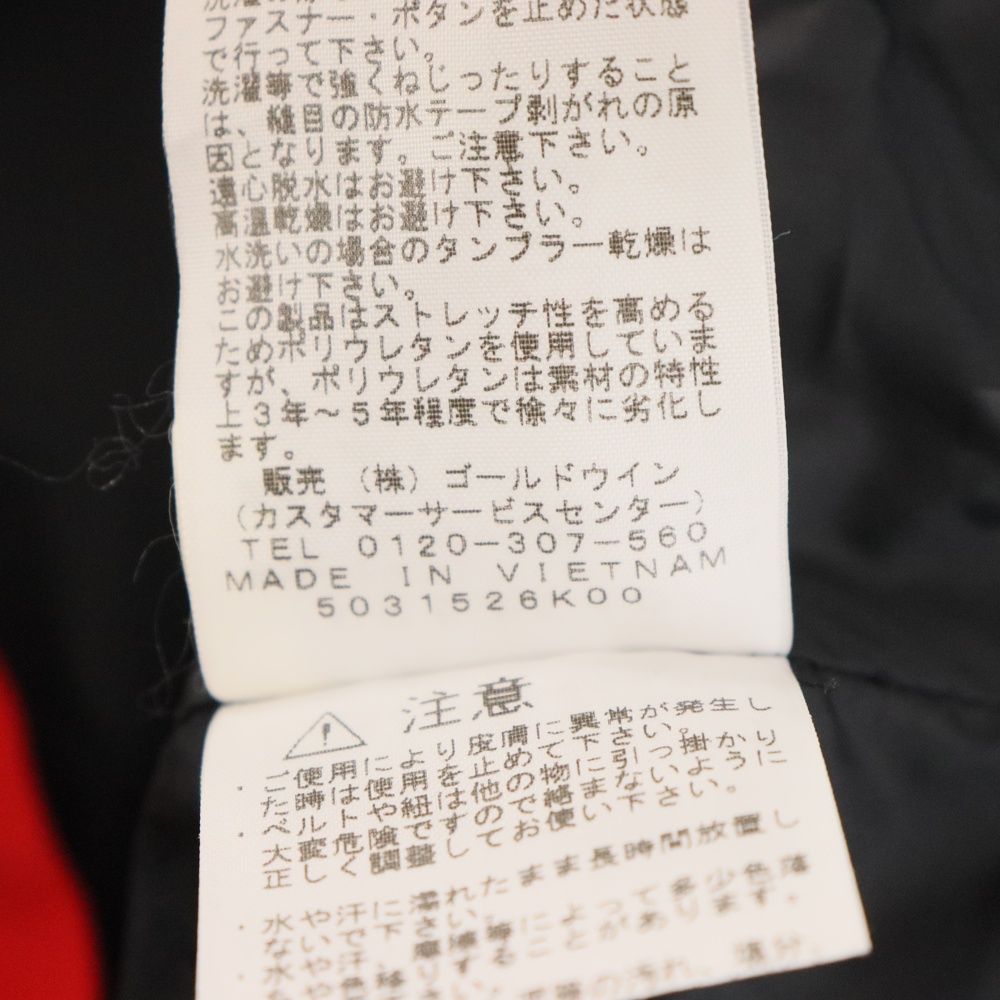 ファスナー・ボタンを止めた状態
で行って下さい。
洗濯等で強くねじったりすること
は、縫目の防水テープ剥がれの原
因となります。ご注意下さい。
遠心脱水はお避け下さい。
高温乾燥はお避け下さい。
水洗いの場合のタンブラー乾燥は
お避け下さい。
この製品はストレッチ性を高める
ためポリウレタンを使用していま
すが、ポリウレタンは素材の特性
上3年～5年程度で徐々に劣化し
ます。
販売 (株) ゴールドウイン
(カスタマーサービスセンター)
TEL 0120-307-560
MADE IN VIETNAM
5031526K00
注意
・ご使用により皮膚に異常が発生し
た時は使用を止めて下さい。
・ベルトや紐で他の物に引っ掛かり
大変危険ですのでお絡まないように
正しく調整してお使い下さい。
・水や汗に濡れたまま長時間放置し
ないで下さい。